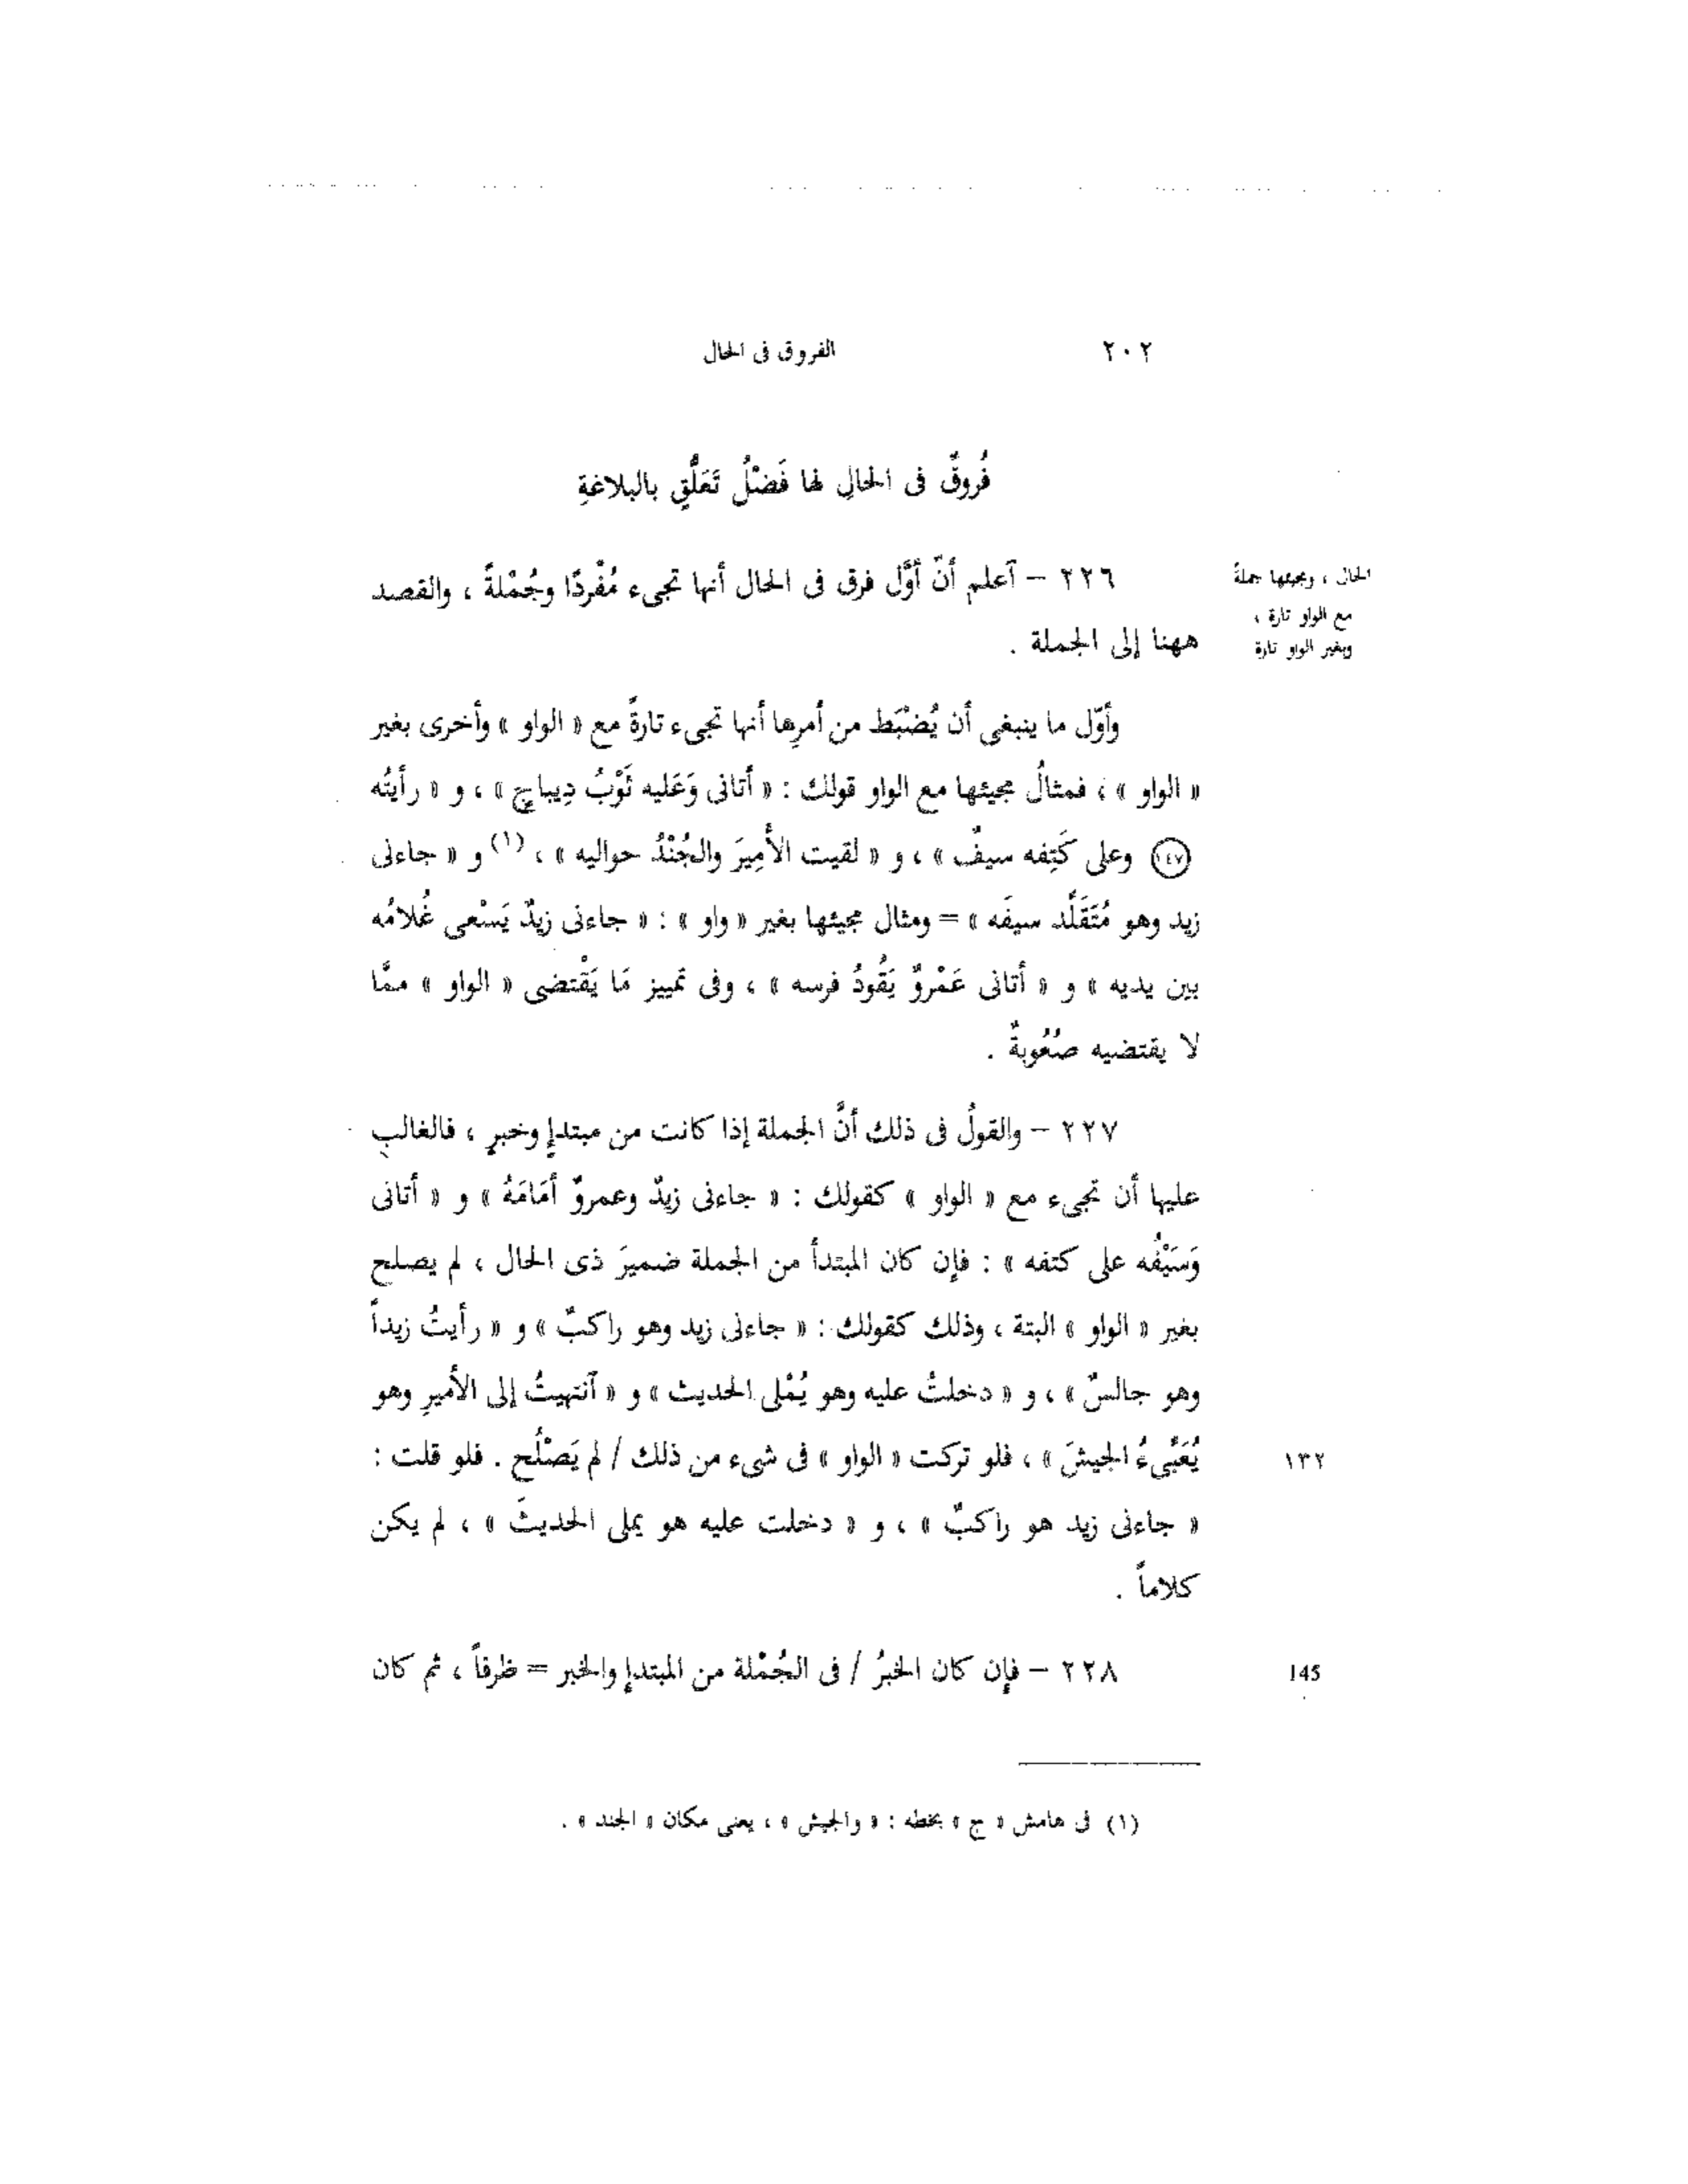 ٢٠٢ الفروق فى الحال
فُروقٌ فى الحالِ لها فَضْلُ تَعَلُّقٍ بالبلاغةِ
٢٢٦ – آعلم أنّ أوَّل فرق فى الحال أنها تجىء مُفْردًا وجُمْلةً ، والقصد
ههنا إلى الجملة .
الحال ، ومجيئها جملةً
مع الواو تارة ،
وبغير الواو تارة
وأوّل ما ينبغى أن يُضْبَط من أمرِها أنها تجىء تارةً مع « الواو » وأخرى بغير
« الواو » ؛ فمثالُ مجيئها مع الواو قولك : « أتانى وَعَليه ثَوْبُ دِيباجٍ » ، و « رأيتُه
(١٤٧) وعلى كَتِفه سيفٌ » ، و « لقيت الأَمِيرَ والجُنْدُ حواليه » ، (١) و « جاءنى
زيد وهو مُتَقَلِّد سيفَه » = ومثال مجيئها بغير « واو » : « جاءنى زيدٌ يَسْعى غُلامُه
بين يديه » و « أتانى عَمْروٌ يَقُودُ فرسه » ، وفى تمييز مَا يَقْتضى « الواو » ممَّا
لا يقتضيه صُعُوبةٌ .
٢٢٧ – والقولُ فى ذلك أنَّ الجملة إذا كانت من مبتدإٍ وخبرٍ ، فالغالبِ
عليها أن تجىء مع « الواو » كقولك : « جاءنى زيدٌ وعمروٌ أمَامَهُ » و « أتانى
وَسَيْفُه على كتفه » : فإن كان المبتدأ من الجملة ضميرَ ذى الحال ، لم يصلح
بغير « الواو » البتة ، وذلك كقولك : « جاءنى زيد وهو راكبٌ » و « رأيتُ زيداً
وهو جالسٌ » ، و « دخلتُ عليه وهو يُمْلى الحديث » و « آنتهيتُ إلى الأميرِ وهو
يُعَبِّىءُ الجيشَ » ، فلو تركت « الواو » فى شىء من ذلك / لم يَصْلُح . فلو قلت : ١٣٢
« جاءنى زيد هو راكبٌ » ، و « دخلت عليه هو يملى الحديثَ » ، لم يكن
كلاماً .
٢٢٨ – فإن كان الخبرُ / فى الجُمْلة من المبتدإ والخبر = ظرفاً ، ثم كان 145
(١) فى هامش « ج » بخطه : « والجيش » ، يعنى مكان « الجند » .